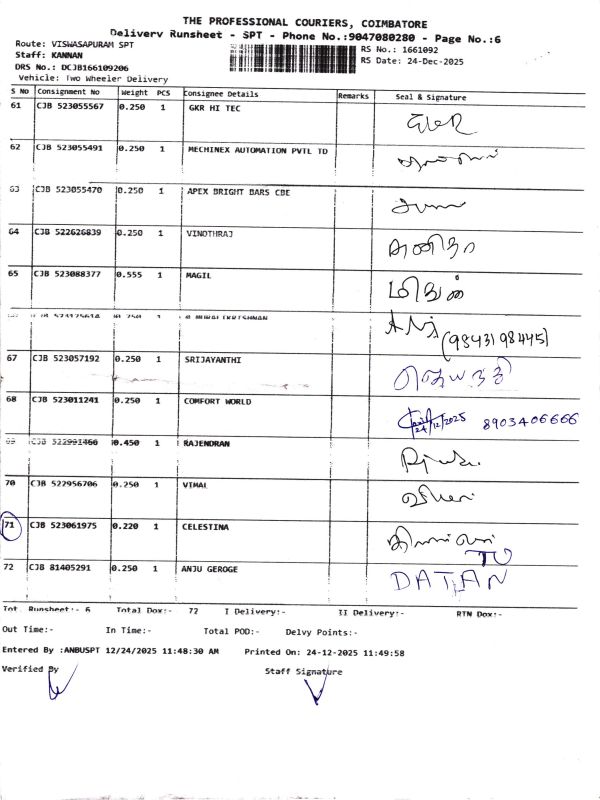 THE PROFESSIONAL COURIERS, COIMBATORE
Delivery Runsheet - SPT - Phone No.:9047080280 - Page No.:6
Route: VISWASAPURAM SPT
RS No.: 1661092
Staff: KANNAN
RS Date: 24-Dec-2025
DRS No.: DCJB166109206
Vehicle: Two Wheeler Delivery
S No Consignment No Weight PCS Consignee Details Remarks Seal & Signature
61 CJB 523055567 0.250 1 GKR HI TEC
62 CJB 523055491 0.250 1 MECHINEX AUTOMATION PVTL TD
63 CJB 523055470 0.250 1 APEX BRIGHT BARS CBE
64 CJB 522626839 0.250 1 VINOTHRAJ
65 CJB 523088377 0.555 1 MAGIL
(98431 98445)
67 CJB 523057192 0.250 1 SRIJAYANTHI
68 CJB 523011241 0.250 1 COMFORT WORLD 24/12/2025 8903406666
69 CJB 522991466 0.450 1 RAJENDRAN
70 CJB 522956706 0.250 1 VIMAL
71 CJB 523061975 0.220 1 CELESTINA
72 CJB 81405291 0.250 1 ANJU GEROGE
Tot Runsheet:- 6 Total Dox:- 72 I Delivery:- II Delivery:- RTN Dox:-
Out Time:- In Time:- Total POD:- Delvy Points:-
Entered By :ANBUSPT 12/24/2025 11:48:30 AM Printed On: 24-12-2025 11:49:58
Verified By Staff Signature